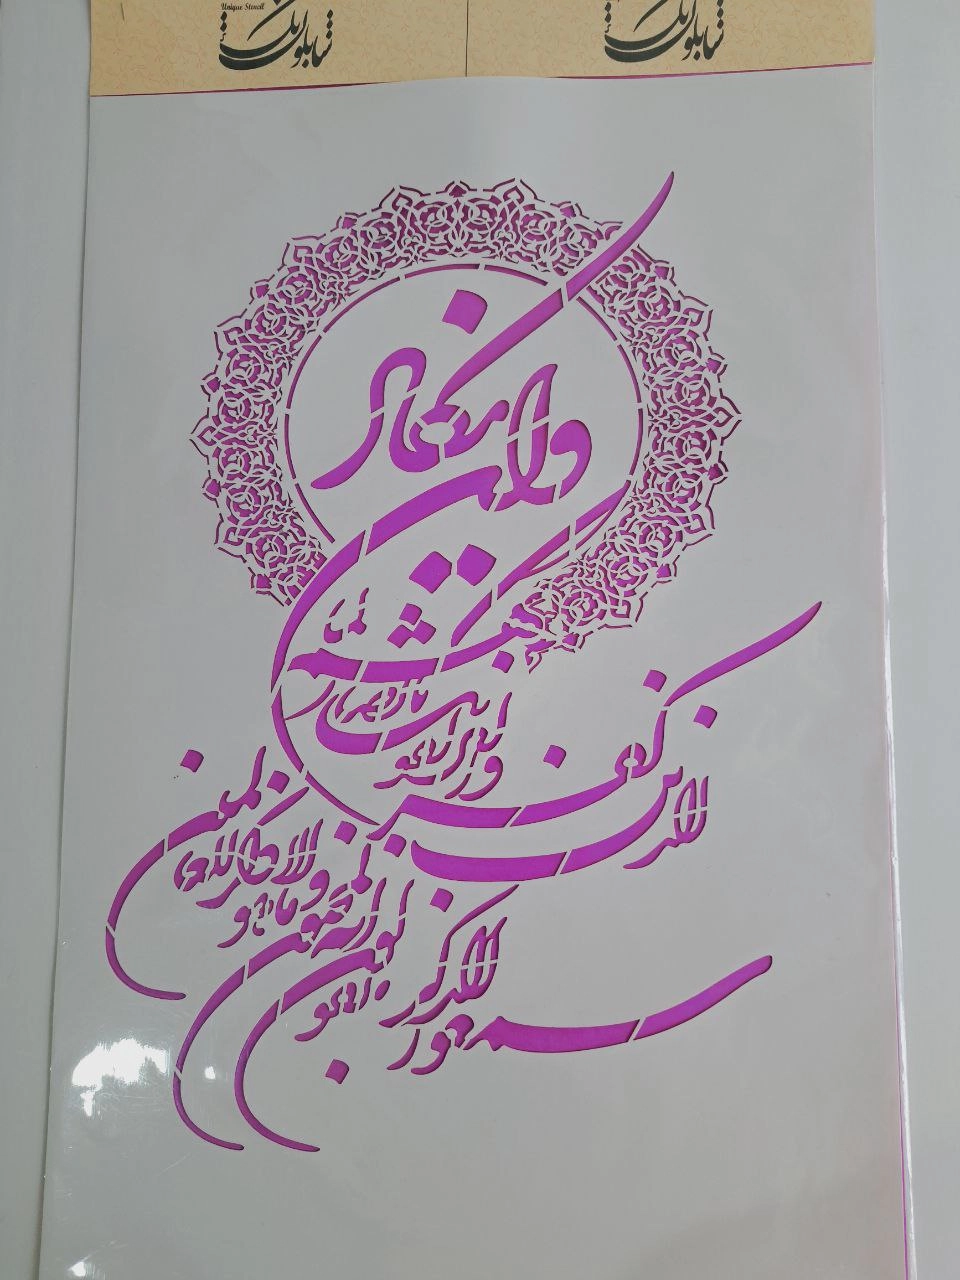 Unique Stencil
وان یکاد
الذین کفروا
لیزلقونک بابصارهم لما
سمعوا الذکر
و یقولون
انه لمجنون
و ما هو الا ذکر للعالمین